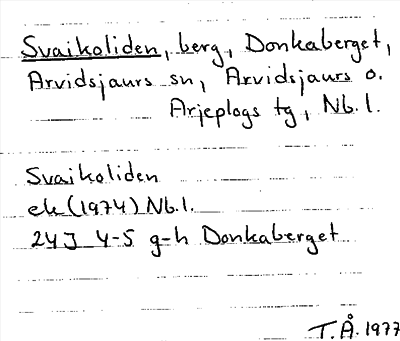 Svaikoliden, berg, Donkaberget,
Arvidsjaurs sn, Arvidsjaurs o.
Arjeplogs tg, Nb.l.
Svaikoliden
ek (1974) Nb.l.
24J 4-5 g-h Donkaberget
T.Å. 1977